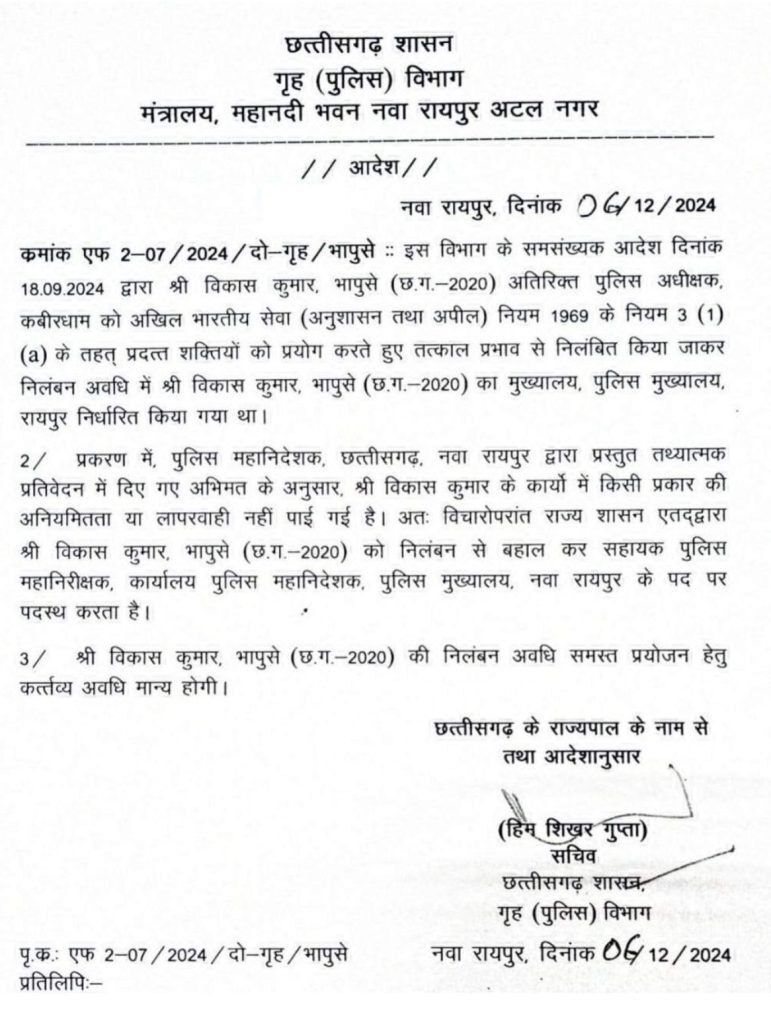 छत्तीसगढ़ शासन
गृह (पुलिस) विभाग
मंत्रालय, महानदी भवन नवा रायपुर अटल नगर
// आदेश//
नवा रायपुर, दिनांक 06/12/2024
कमांक एफ 2–07/2024/दो–गृह/भापुसे :: इस विभाग के समसंख्यक आदेश दिनांक
18.09.2024 द्वारा श्री विकास कुमार, भापुसे (छ.ग.–2020) अतिरिक्त पुलिस अधीक्षक,
कबीरधाम को अखिल भारतीय सेवा (अनुशासन तथा अपील) नियम 1969 के नियम 3 (1)
(a) के तहत् प्रदत्त शक्तियों को प्रयोग करते हुए तत्काल प्रभाव से निलंबित किया जाकर
निलंबन अवधि में श्री विकास कुमार, भापुसे (छ.ग.–2020) का मुख्यालय, पुलिस मुख्यालय,
रायपुर निर्धारित किया गया था।
2/ प्रकरण में, पुलिस महानिदेशक, छत्तीसगढ़, नवा रायपुर द्वारा प्रस्तुत तथ्यात्मक
प्रतिवेदन में दिए गए अभिमत के अनुसार, श्री विकास कुमार के कार्यो में किसी प्रकार की
अनियमितता या लापरवाही नहीं पाई गई है। अतः विचारोपरांत राज्य शासन एतद्द्वारा
श्री विकास कुमार, भापुसे (छ.ग.–2020) को निलंबन से बहाल कर सहायक पुलिस
महानिरीक्षक, कार्यालय पुलिस महानिदेशक, पुलिस मुख्यालय, नवा रायपुर के पद पर
पदस्थ करता है।
3/ श्री विकास कुमार, भापुसे (छ.ग.–2020) की निलंबन अवधि समस्त प्रयोजन हेतु
कर्त्तव्य अवधि मान्य होगी।
छत्तीसगढ़ के राज्यपाल के नाम से
तथा आदेशानुसार
(हिम शिखर गुप्ता)
सचिव
छत्तीसगढ़ शासन,
गृह (पुलिस) विभाग
पृ.क.: एफ 2–07/2024/दो–गृह/भापुसे नवा रायपुर, दिनांक 06/12/2024
प्रतिलिपिः–